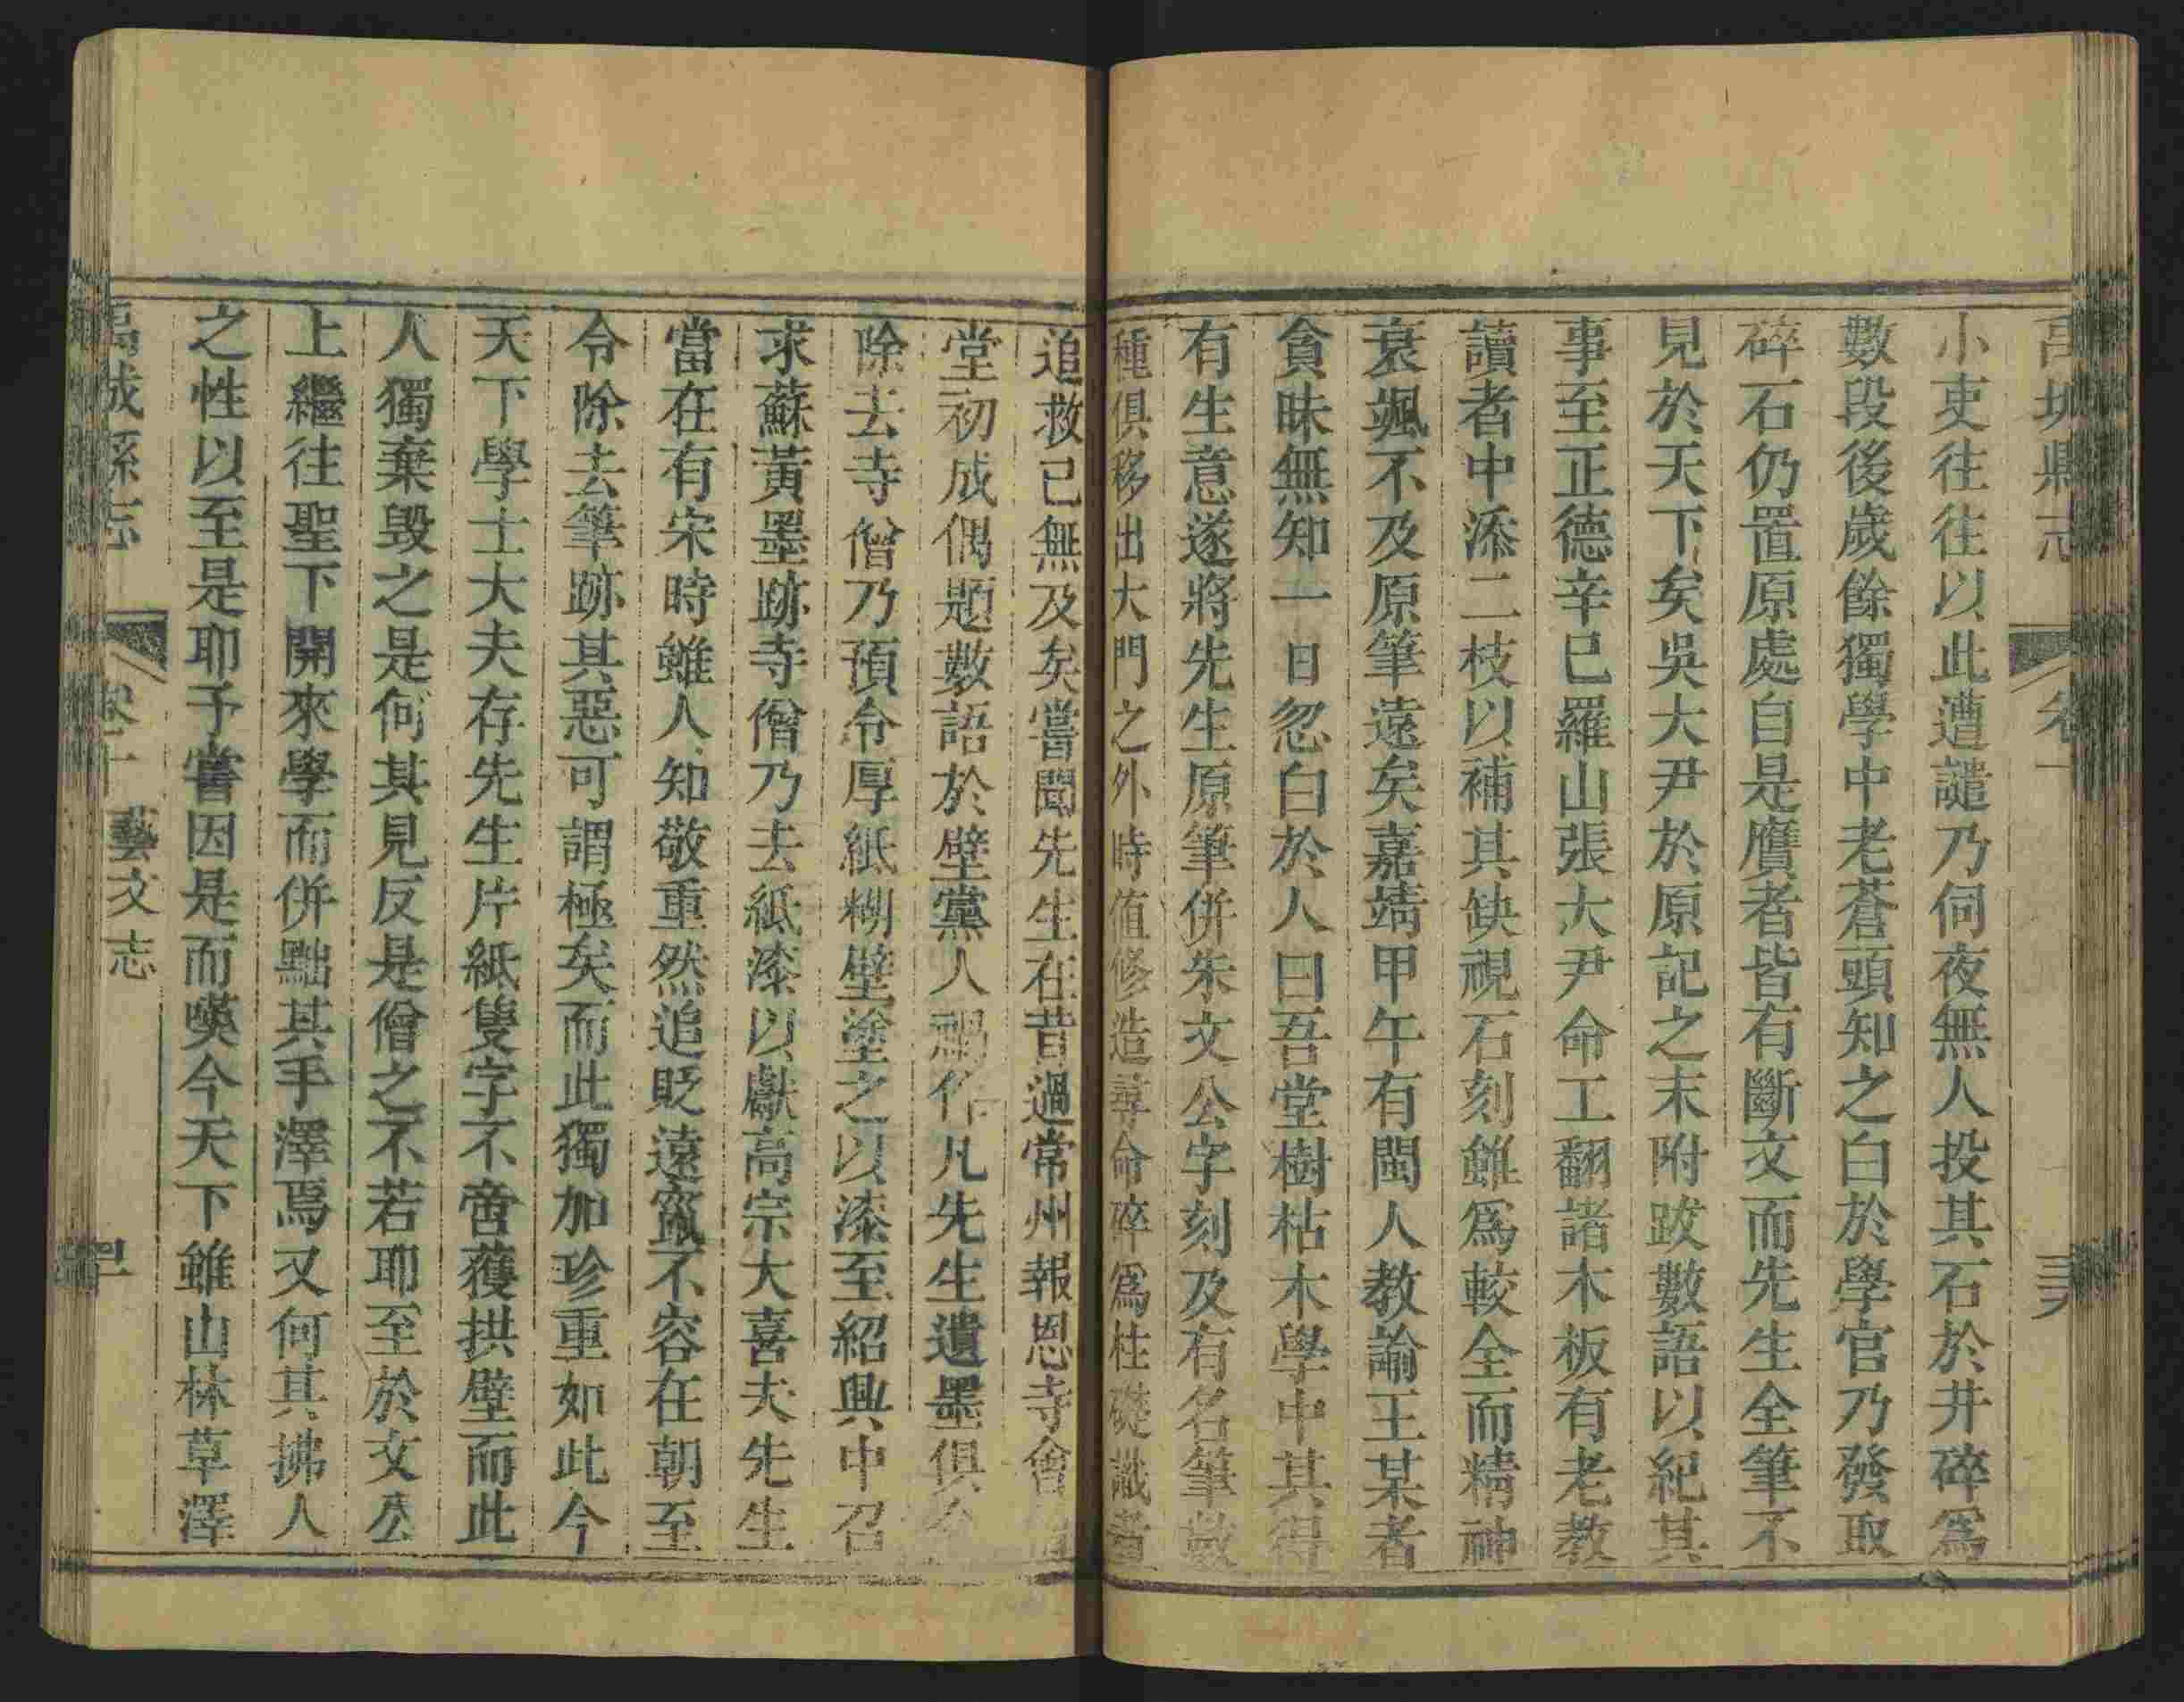 小吏往往以此遭譴乃伺夜無人投其石於井碎爲
數段後歲餘獨學中老蒼頭知之白於學官乃發取
碎石仍置原處自是贋者皆有斷文而先生全筆不
見於天下矣吳大尹於原記之末附跋數語以紀其
事至正德辛巳羅山張大尹命工翻諸木板有老教
讀者中添二枝以補其缺視石刻雖爲較全而精神
衰颯不及原筆遠矣嘉靖甲午有閩人教諭王某者
貪昧無知一日忽白於人曰吾堂樹枯木學中其得
有生意遂將先生原筆併朱文公字刻及有名筆數
種俱移出大門之外時值修造尋命碎爲柱礎識者
追救已無及矣嘗聞先生在昔過常州報恩寺會
堂初成偶題數語於壁黨人禍作凡先生遺墨俱令
除去寺僧乃預令厚紙糊壁塗之以漆至紹興中召
求蘇黃墨跡寺僧乃去紙漆以獻高宗大喜夫先生
當在有宋時雖人知敬重然追貶遠竄不容在朝至
令除去筆跡其惡可謂極矣而此獨加珍重如此今
天下學士大夫存先生片紙隻字不啻獲拱璧而此
人獨棄毀之是何其見反是僧之不若耶至於文公
上繼往聖下開來學而併黜其手澤焉又何其拂人
之性以至是耶予嘗因是而嘆今天下雖山林草澤
禹城縣志 卷十 藝文志